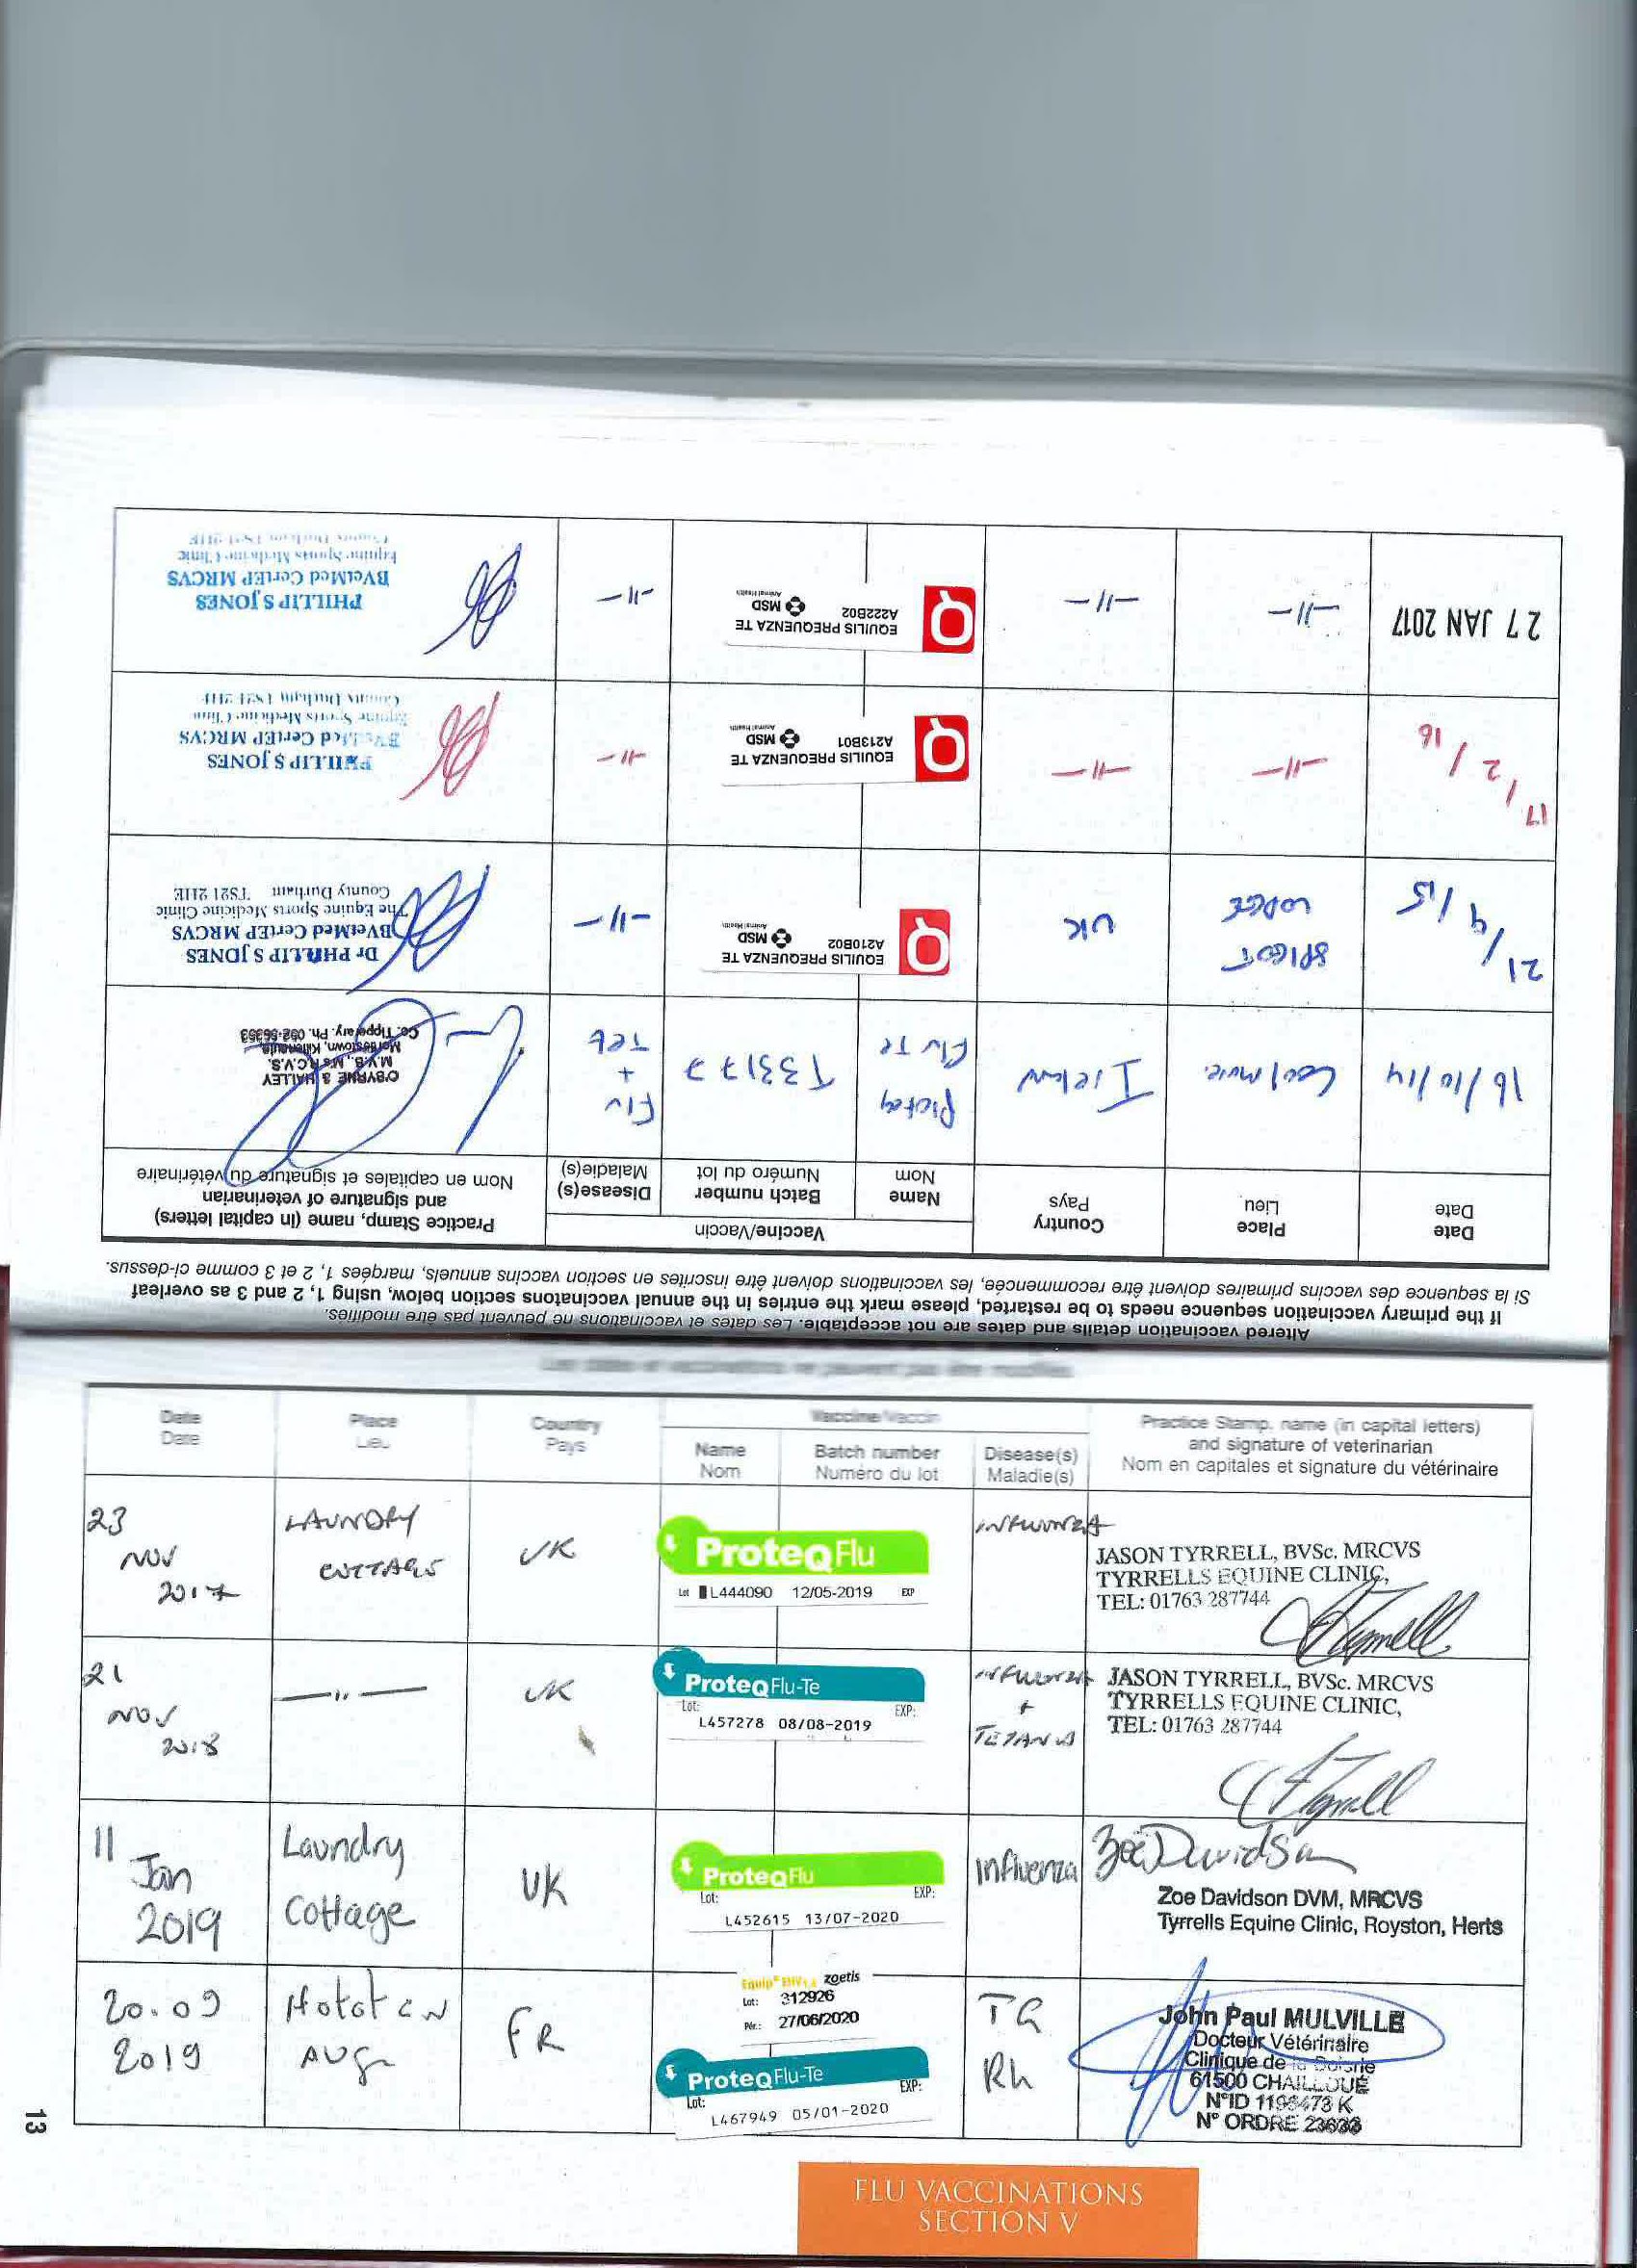 Altered vaccination details and dates are not acceptable. Les dates et vaccinations ne peuvent pas être modifiés.
If the primary vaccination sequence needs to be restarted, please mark the entries in the annual vaccinatons section below, using 1, 2 and 3 as overleaf
Si la sequence des vaccins primaires doivent être recommencée, les vaccinations doivent être inscrites en section vaccins annuels, margées 1, 2 et 3 comme ci-dessus.
Date
Date
Place
Lieu
Country
Pays
Vaccine/Vaccin
Name
Nom
Batch number
Numéro du lot
Disease(s)
Maladie(s)
Practice Stamp, name (in capital letters)
and signature of veterinarian
Nom en capitales et signature du vétérinaire
16/10/14
Coolmore
Flu Te
T33177
Flu
+
Tet
O'BYRNE & HALLEY
M.V.B., M.R.C.V.S.
Co. Tipperary. Ph. 052-56353
21/9/15
SPIGOT
LODGE
UK
EQUILIS PREQUENZA TE
A210B02
MSD
Animal Health
-11-
Dr PHILLIP S JONES
BVetMed CertEP MRCVS
The Equine Sports Medicine Clinic
County Durham TS21 2HE
17/2/16
-11-
-11-
EQUILIS PREQUENZA TE
A213B01
MSD
Animal Health
-11-
PHILLIP S JONES
BVetMed CertEP MRCVS
Equine Sports Medicine Clinic
County Durham TS21 2HE
27 JAN 2017
-11-
-11-
EQUILIS PREQUENZA TE
A222B02
MSD
Animal Health
-11-
PHILLIP S JONES
BVetMed CertEP MRCVS
Equine Sports Medicine Clinic
County Durham TS21 2HE
Les dates et vaccinations ne peuvent pas être modifiés.
Date
Date
Place
Lieu
Country
Pays
Vaccine/Vaccin
Name
Nom
Batch number
Numéro du lot
Disease(s)
Maladie(s)
Practice Stamp. name (in capital letters)
and signature of veterinarian
Nom en capitales et signature du vétérinaire
23
NOV
2017
LAUNDRY
COTTAGES
UK
ProteqFlu
Lot L444090 12/05-2019 EXP
INFLUENZA
JASON TYRRELL, BVSc. MRCVS
TYRRELLS EQUINE CLINIC,
TEL: 01763 287744
21
NOV
2018
-11-
UK
ProteqFlu-Te
Lot: EXP:
L457278 08/08-2019
INFLUENZA
+
TETANUS
JASON TYRRELL, BVSc. MRCVS
TYRRELLS EQUINE CLINIC,
TEL: 01763 287744
11
Jan
2019
Laundry
Cottage
UK
ProteqFlu
Lot: EXP:
L452615 13/07-2020
Influenza
Zoe Davidson
Zoe Davidson DVM, MRCVS
Tyrrells Equine Clinic, Royston, Herts
20.09
2019
Hotot en
Auge
FR
Equip® EHV1,4 zoetis
Lot: 312926
Pér.: 27/06/2020
ProteqFlu-Te
Lot: EXP:
L467949 05/01-2020
TG
Rh
John Paul MULVILLE
Docteur Vétérinaire
Clinique de la
61500 CHAILLOUÉ
N° ORDRE
13
FLU VACCINATIONS
SECTION V